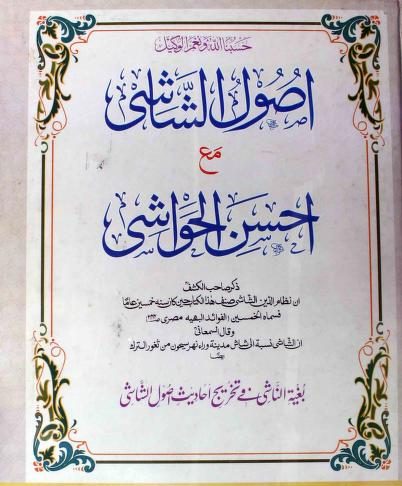 حسبنا الله ونعم الوكيل
اصُولُ الشَّاشی
مع
احسن الحواشی
ذكر صاحب الكشف
ان نظام الدين الشاشی صنف هذا الكتاب حين كان سنه خمسين عامًا
فسماه الخمسين (الفوائد البهيه مصری
وقال اسمعانی
ان الشاشی نسبة الی شاش مدينة وراء نهر سيحون من ثغور الترك
بغية الناشی فی تخريج احاديث اصول الشاشی